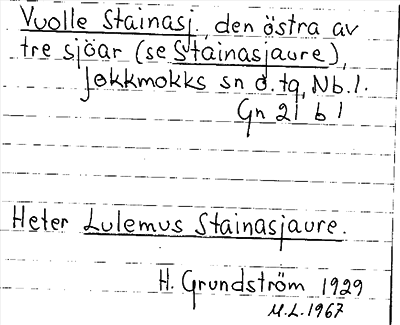 Vuolle Stainasj., den östra av
tre sjöar (se Stainasjaure),
Jokkmokks sn o. tg, Nb.l.
Gn 21 b 1
Heter Lulemus Stainasjaure.
H. Grundström 1929
M.L. 1967